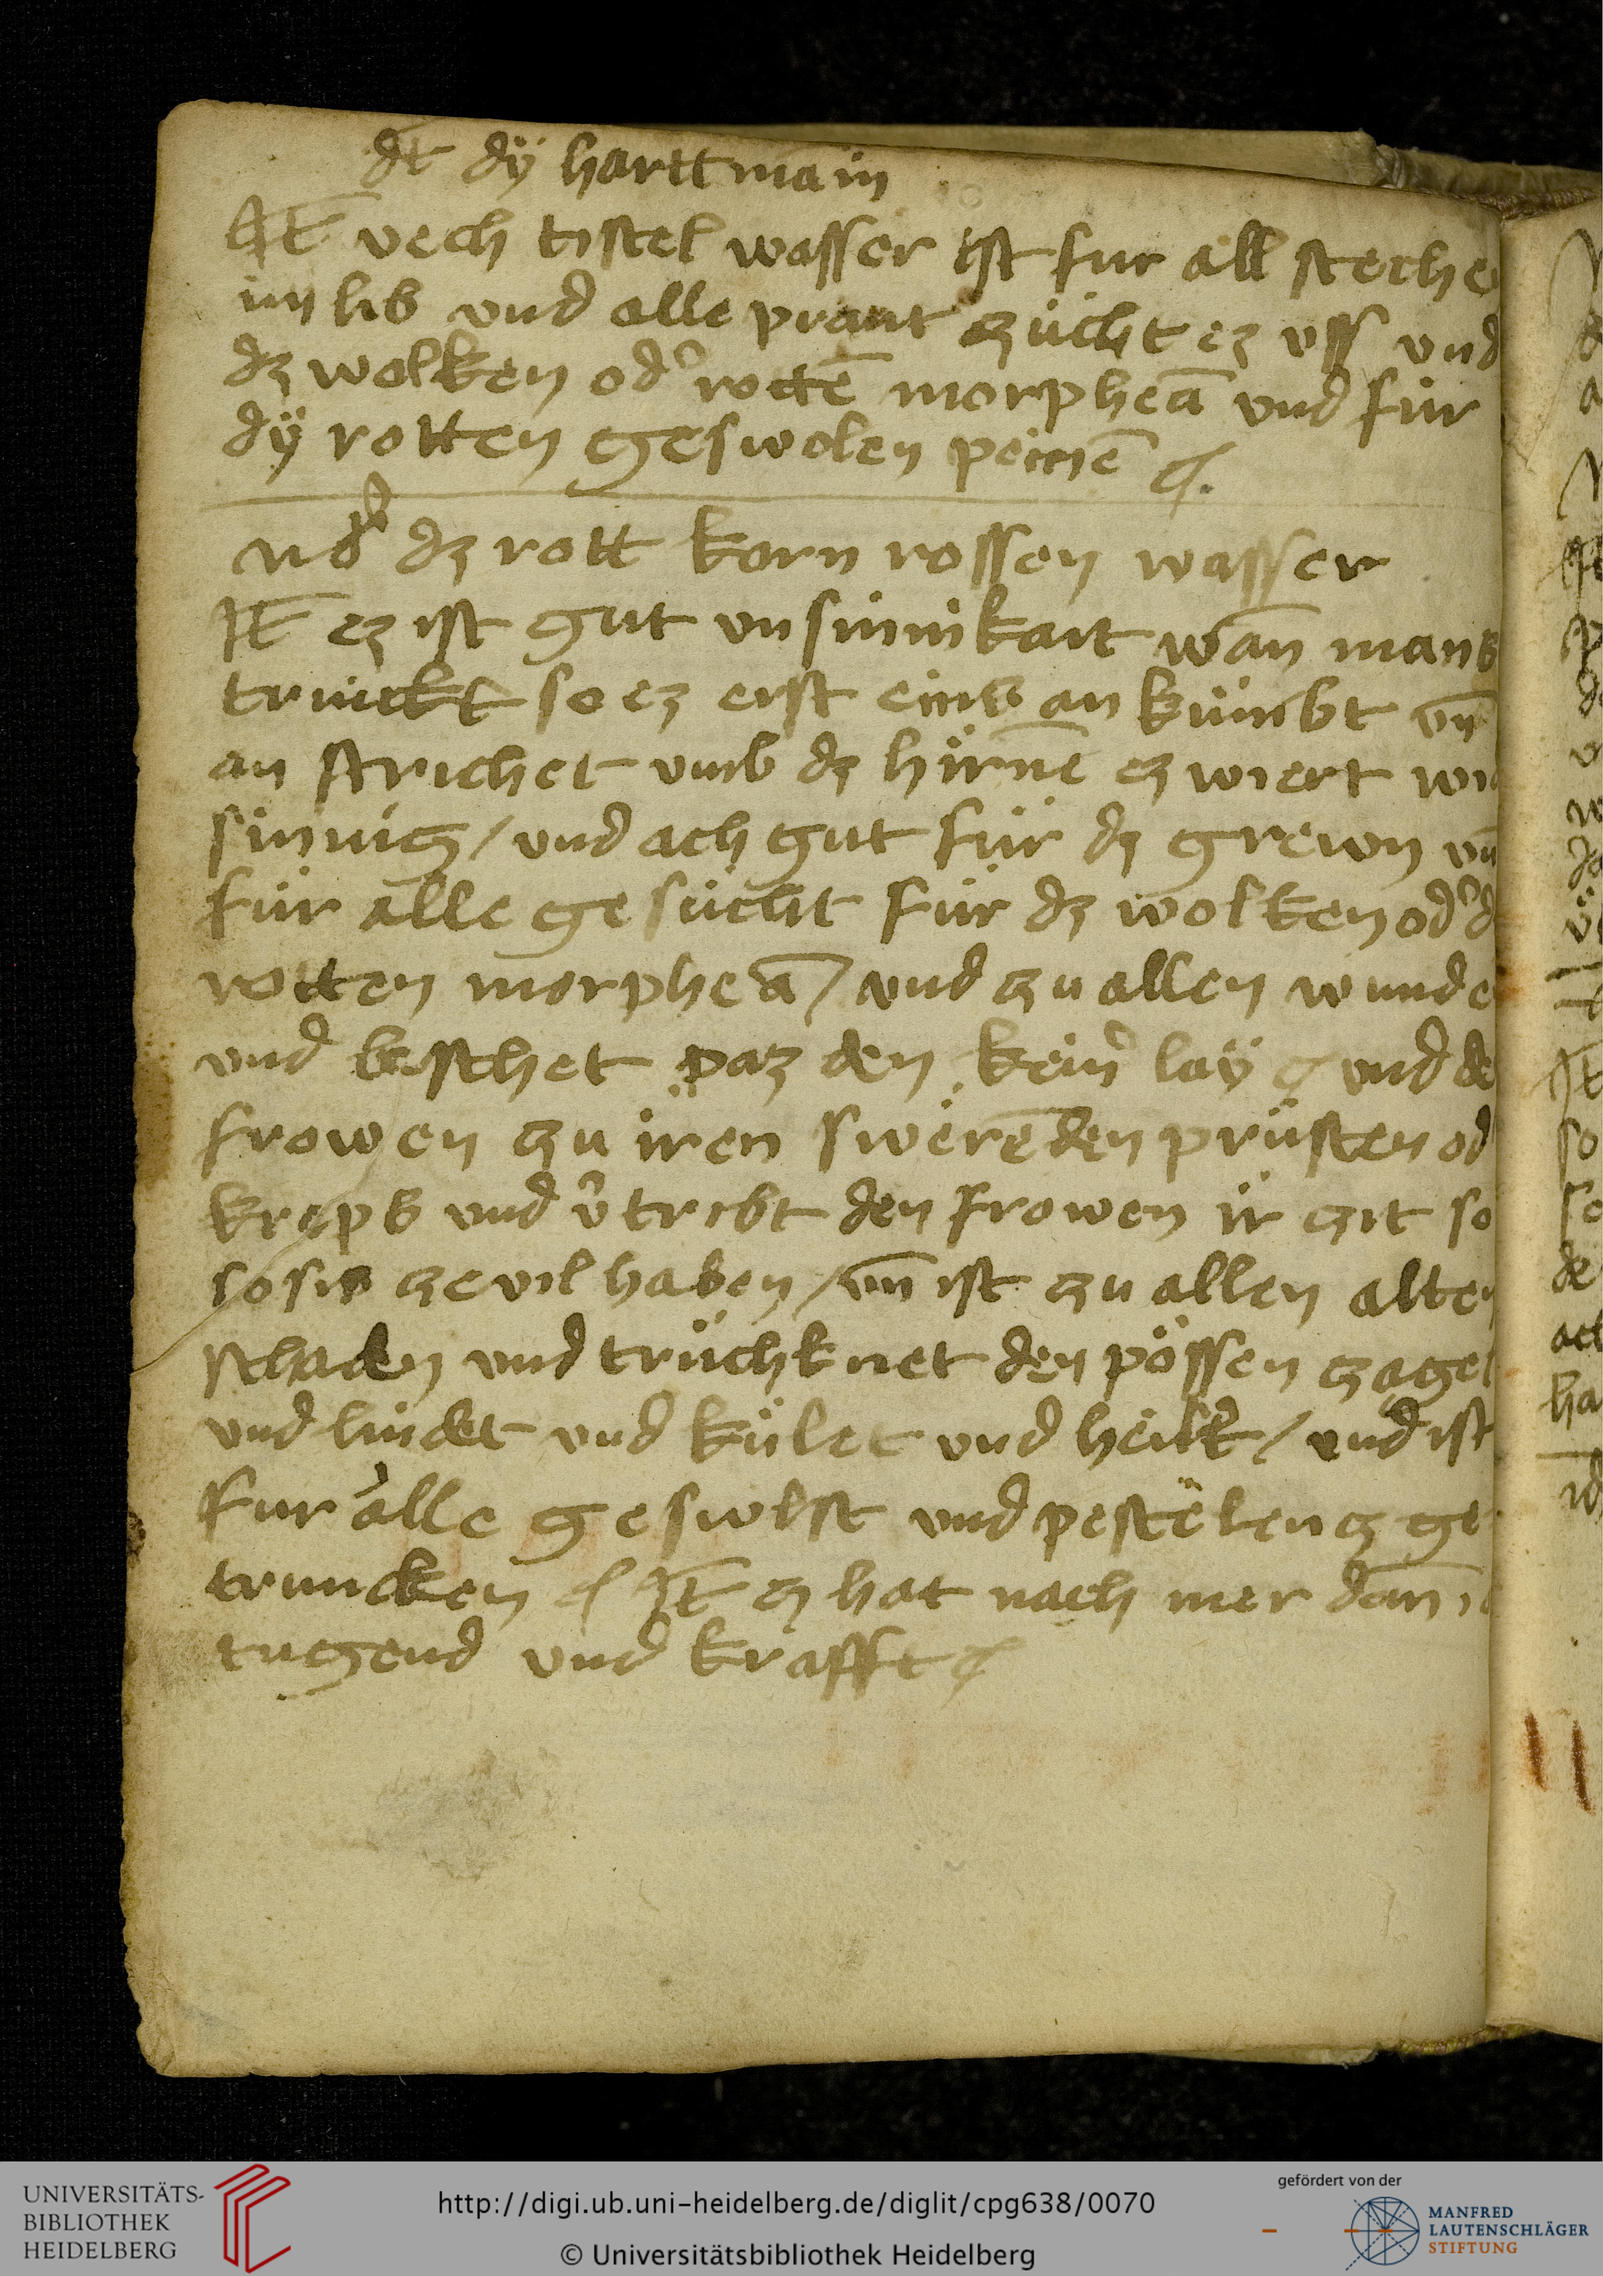 dt dÿ harttmain
It̄ vech tistel wasser ist fur all steche
im lib vnd alle prant zücht ez uss vnd
dz wolken od' rottē morpheā vnd für
dÿ rotten geswolen peinē
dz rott korn rossen wasser
It̄ ez ist gut vnsinnikait wan̄ mans
trinckt so ez erst eins an kümbt vn̄
an strichet vmb dz hirne ez wiert
sinnig / vnd ach gut für dz grewn vn̄
für alle gesücht für dz wolken od' d
rotten morpheā / vnd zu allen wunde
vnd leschet paz den kein' lay vnd de
frowen zu iren swerēden prüsten od
kreps vnd v'tribt den frowen ir zit so
so sis ze vil haben / vn̄ ist zu allen alten
schaden vnd trüchknet den pössen zagel
vnd lindet vnd kület vnd heilt / vnd ist
fur alle geswlst vnd pestelencz ge
truncken It̄ ez hat nach mer dan̄
tugend vnd krafft
UNIVERSITÄTS-
BIBLIOTHEK
HEIDELBERG
http://digi.ub.uni-heidelberg.de/diglit/cpg638/0070
© Universitätsbibliothek Heidelberg
gefördert von der
MANFRED
LAUTENSCHLÄGER
STIFTUNG